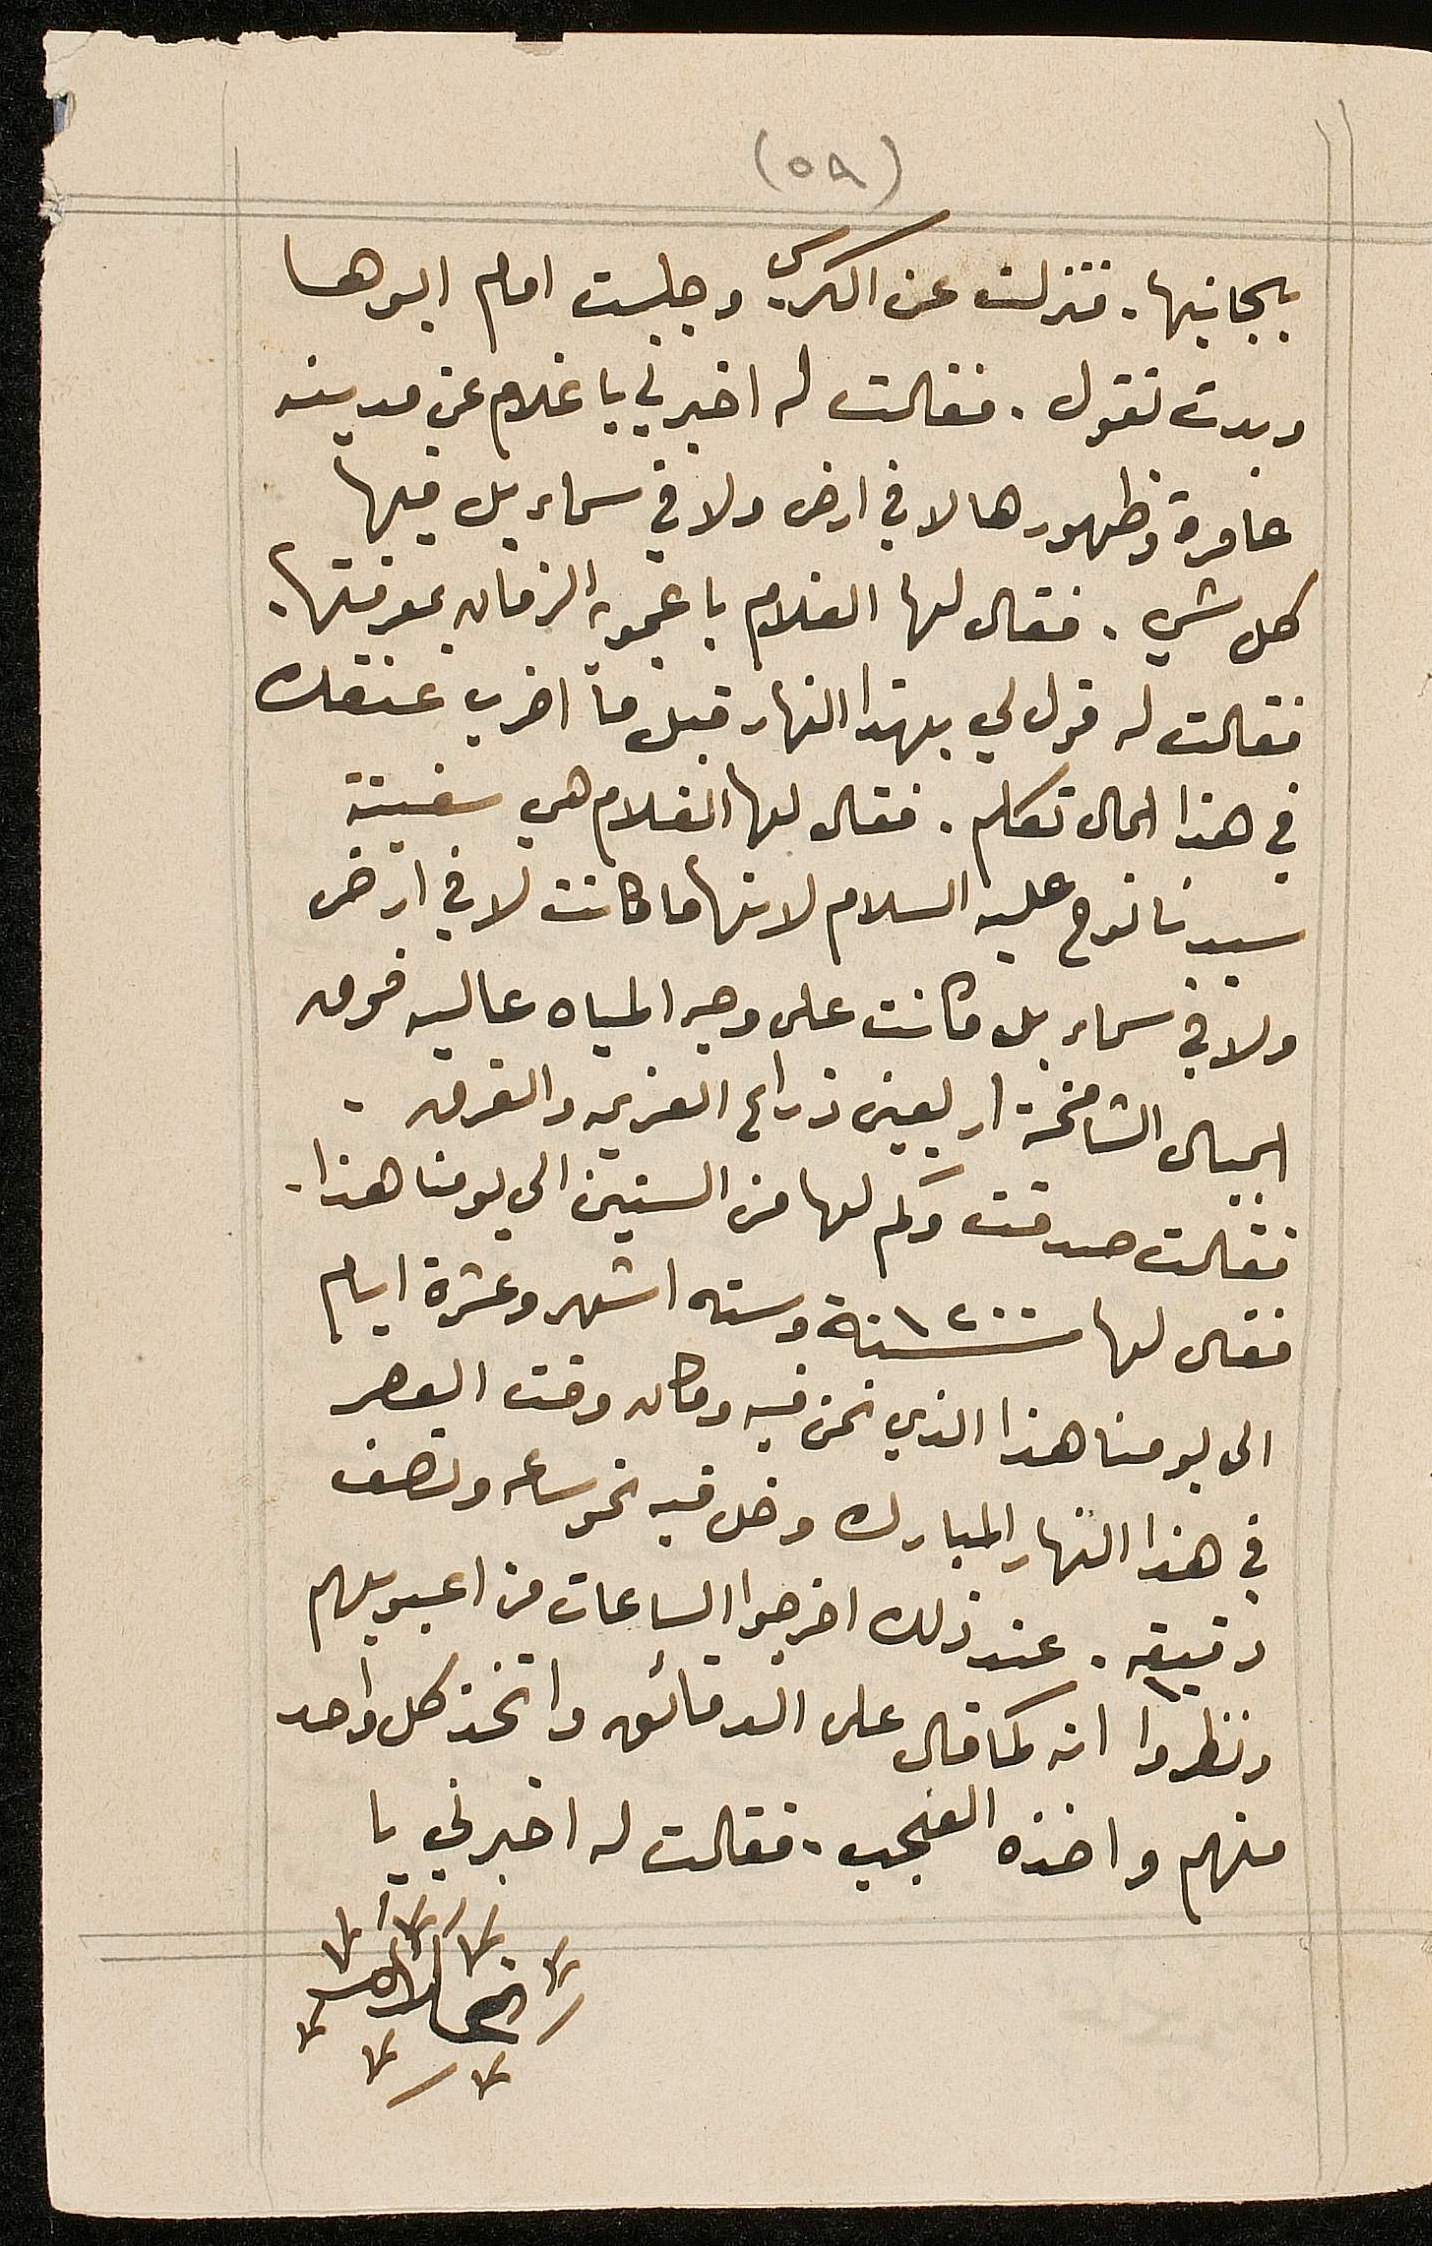 (٥٩)
بجانبها. فنزلت عن الكرسي وجلست امام ابوها
وبدت تقول. فقالت له اخبرني يا غلام عن مدينه
عامرة وظهورها لا في ارض ولا في سماء بل فيها
كل شي. فقال لها الغلام يا عجوبه الزمان بمعرفتها.
فقالت له قول لي بهذا النهار قبل ما اضرب عنقك
في هذا الحال تكلم. فقال لها الغلام هي سفينة
سيدنا نوح عليه السلام لانها ما كانت لا في ارض
ولا في سماء بل كانت على وجه المياه عاليه فوق
الجبال الشامخة اربعين ذراع العزيمه والغرق.
فقالت صدقت وكم لها من السنين الى يومنا هذا.
فقال لها ١٢٠٠ سنة وسته اشهر وعشرة ايام
الى يومنا هذا الذي نحن فيه وكان وقت العصر
في هذا النهار المبارك وضل فيه نحو ساعه ونصف
دقيقه. عند ذلك اخرجوا الساعات من اعبوبهم
ونظروا انه كما قال على الدقائق واتخذ كل واحد
منهم واخذه العجب. فقالت له اخبرني يا